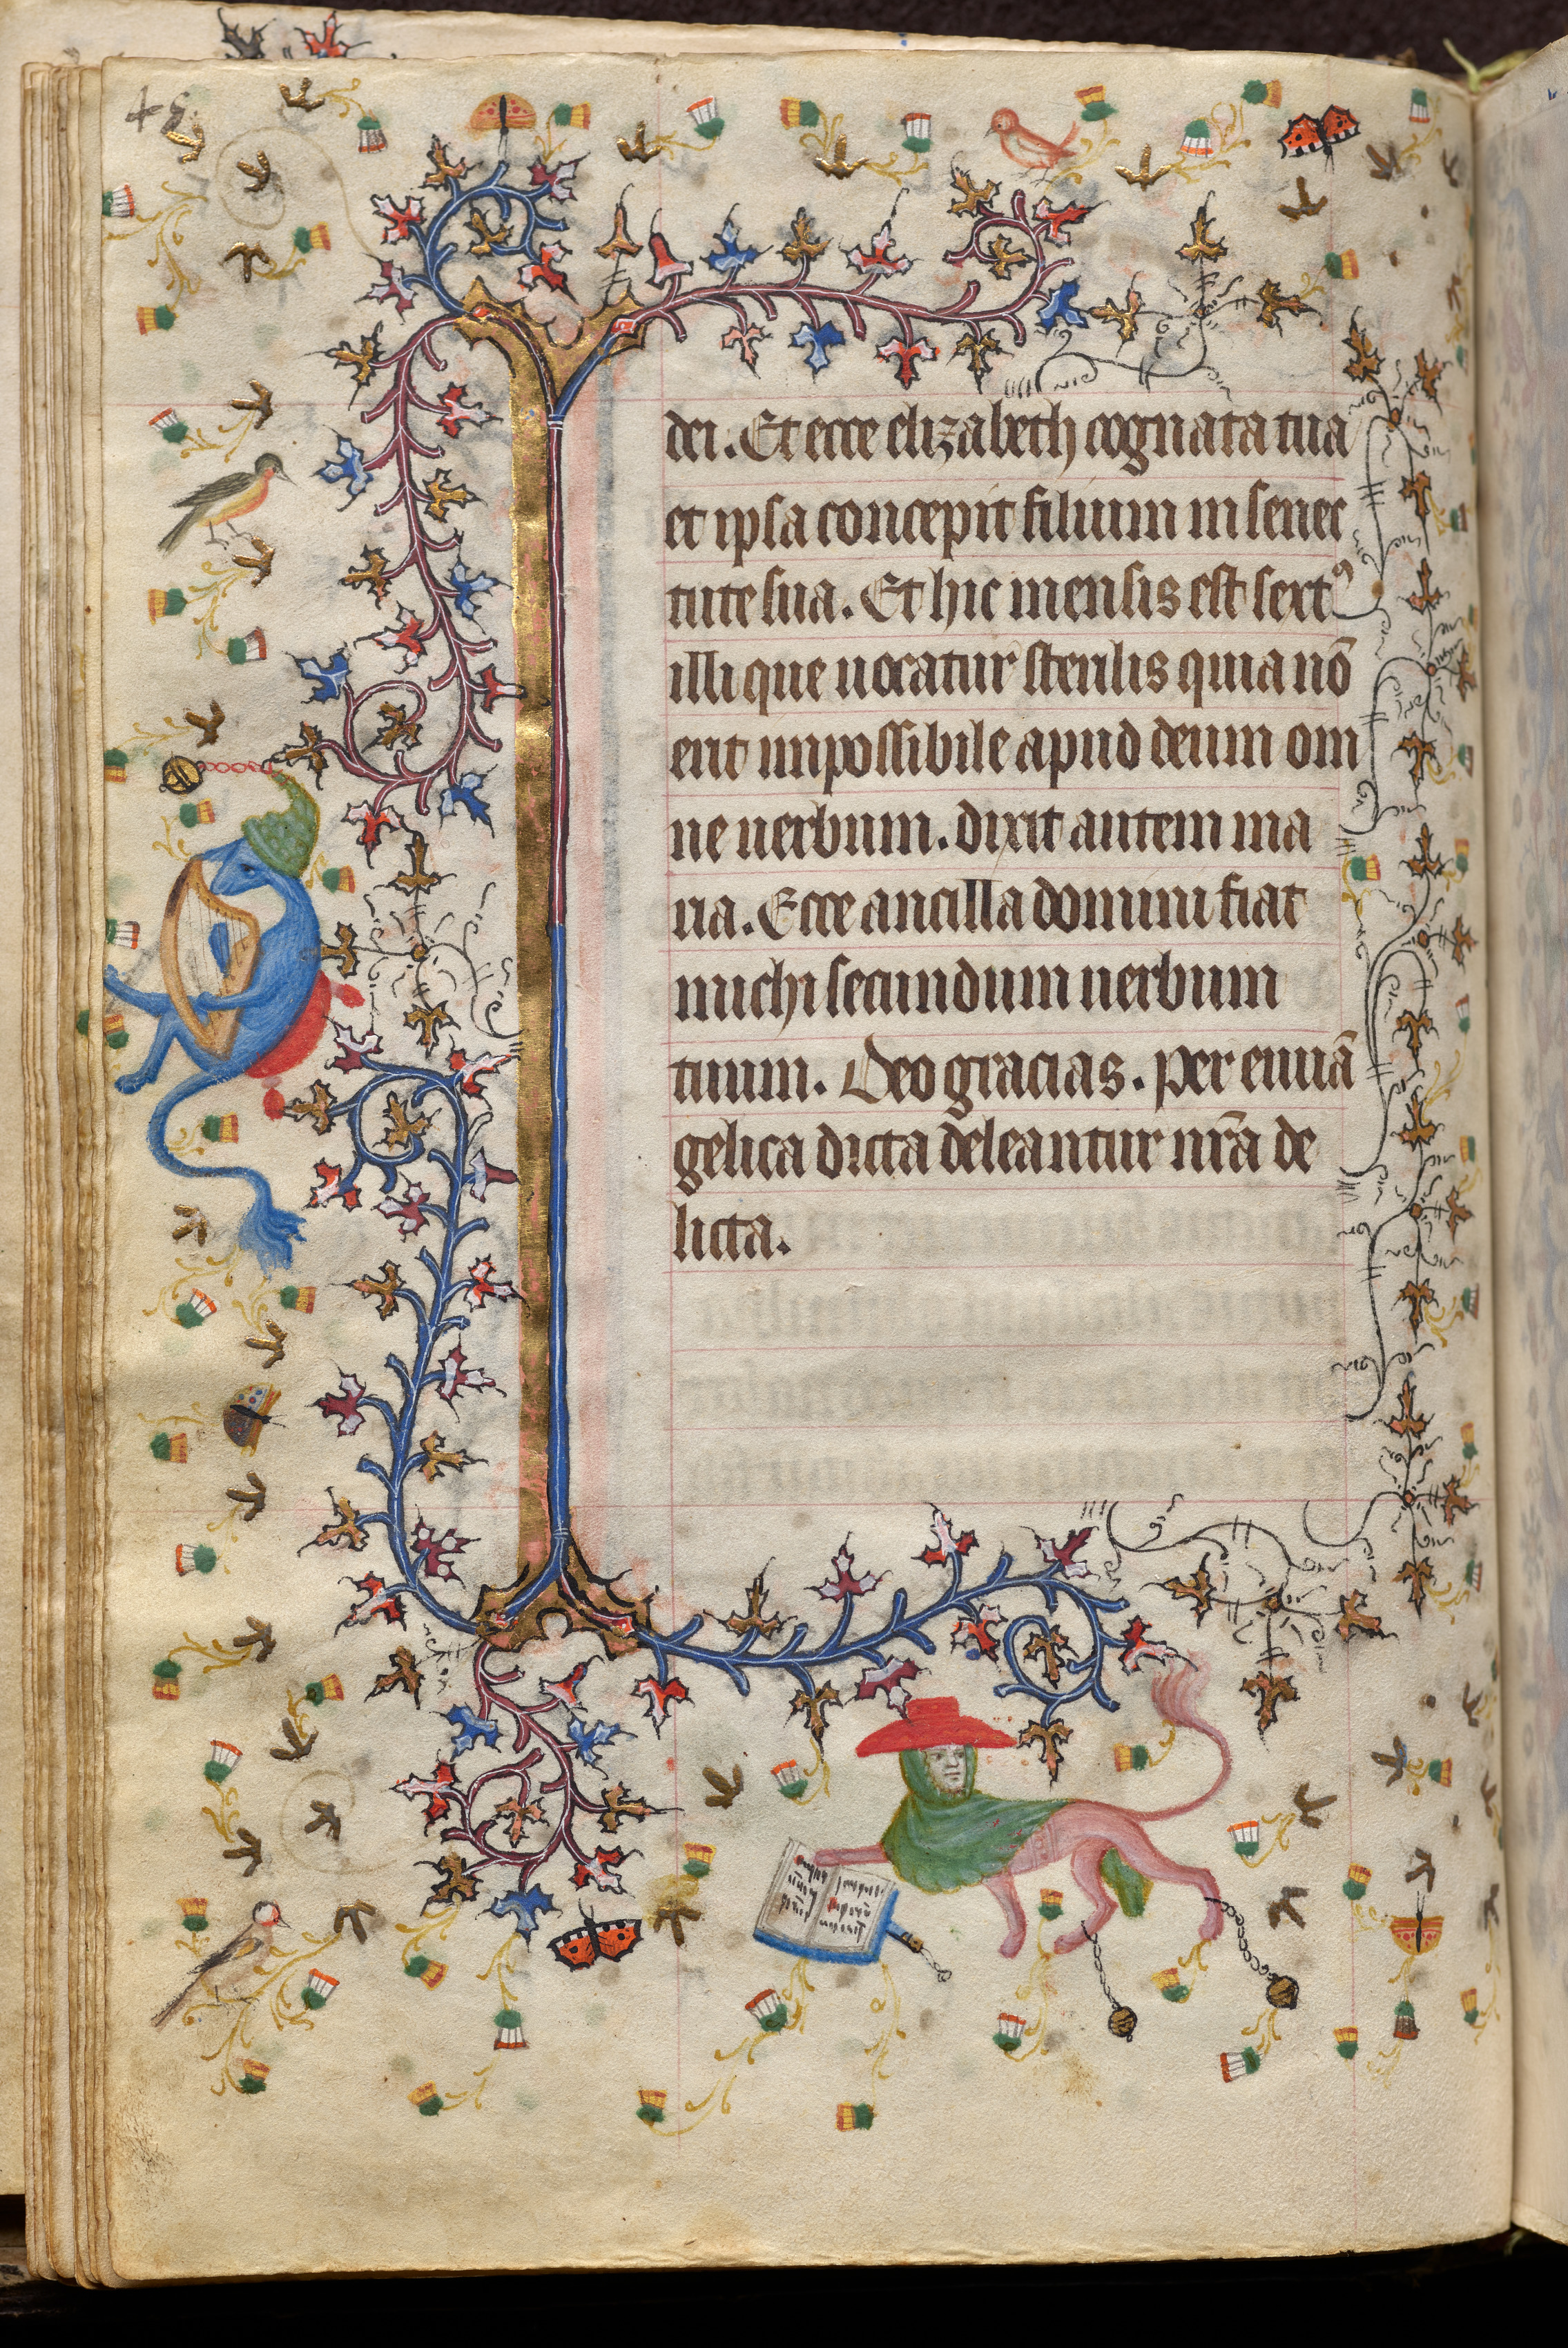 48
dei. Et ecce elizabeth cognata tua
et ipsa concepit filium in senec
tute sua. Et hic mensis est sextꝰ
illi que uocatur sterilis quia nō
erit impossibile apud deum om
ne uerbum. dixit autem ma
ria. Ecce ancilla domini fiat
michi secundum uerbum
tuum. Deo gracias. Per euuā
gelica dicta deleantur nr̄a de
licta.